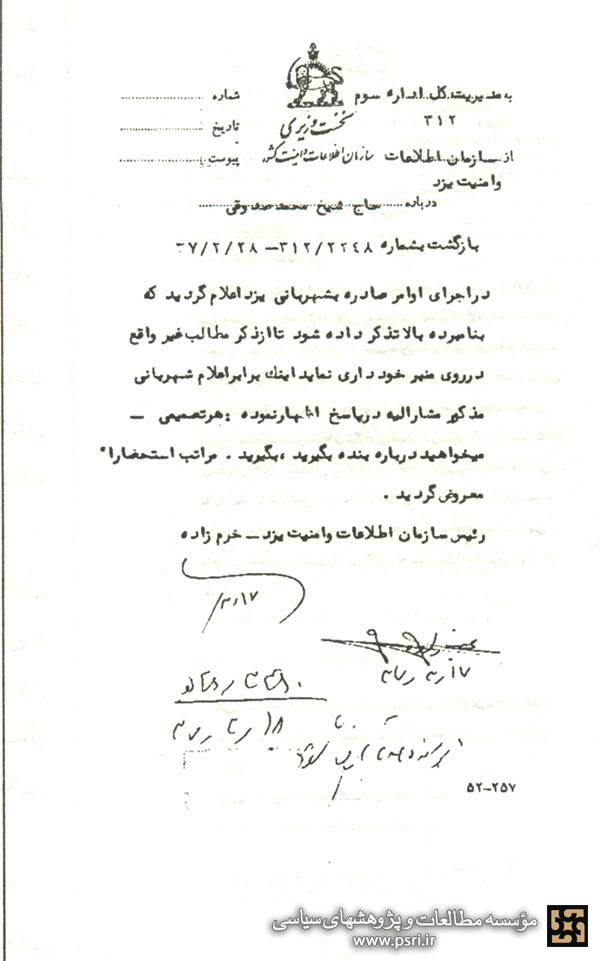 به مدیریت کل اداره سوم شماره
۳۱۲ نخست وزیری تاریخ
از سازمان اطلاعات سازمان اطلاعات و امنیت کشور پیوست
وامنیت یزد
درباره حاج شیخ محمد صدوقی
بازگشت بشماره ۳۱۲/۲۲۴۸ – ۳۷/۲/۲۸
دراجرای اوامر صادره بشهربانی یزد اعلام گردید که
بنامبرده بالا تذکر داده شود تا از ذکر مطالب غیر واقع
درروی منبر خود داری نماید اینك برابر اعلام شهربانی
مذکور مشارالیه درپاسخ اظهارنموده : هرتصمیمی –
میخواهید درباره بنده بگیرید ، بگیرید . مراتب استحضارا"
معروض گردید .
رئیس سازمان اطلاعات وامنیت یزد – خرم زاده
۵۲-۲۵۷
مؤسسه مطالعات و پژوهشهای سیاسی
www.psri.ir